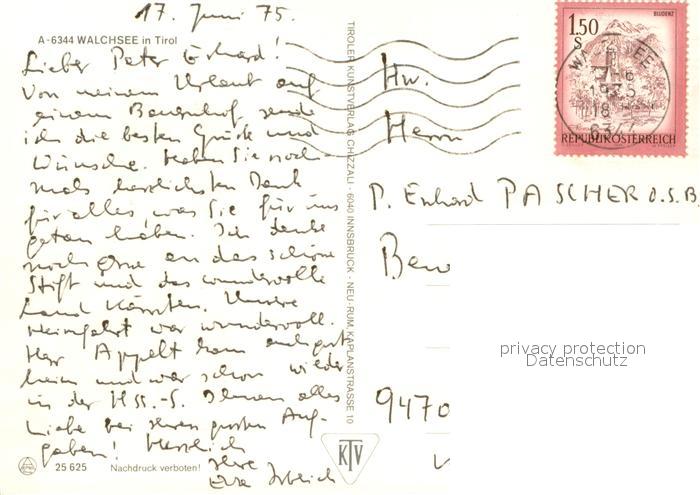 17. Juni 75.
A-6344 WALCHSEE in Tirol
Lieber Pater Erhard!
Von meinem Urlaub auf
einem Bauernhof sende
ich die besten Grüße und
Wünsche. Haben Sie noch-
mals herzlichsten Dank
für alles, was Sie für uns
getan haben. Ich denke
noch gerne an das schöne
Stift und das wundervolle
Land Kärnten. Unsere
Heimfahrt war wundervoll.
Herr Appelt kam auch gut
heim und war schon wieder
in der HSS.-S. Ihnen alles
Liebe bei Ihren großen Auf-
gaben! Herzlich
Ihre
Eva
25 625 Nachdruck verboten!
TIROLER KUNSTVERLAG CHIZZALI · 6040 INNSBRUCK - NEU-RUM, KAPLANSTRASSE 10
KTV
BLUDENZ
1.50
S
REPUBLIK ÖSTERREICH
WALCHSEE
1975
18
63
Hw.
Herrn
P. Erhard PASCHER O.S.B.
9470
privacy protection
Datenschutz